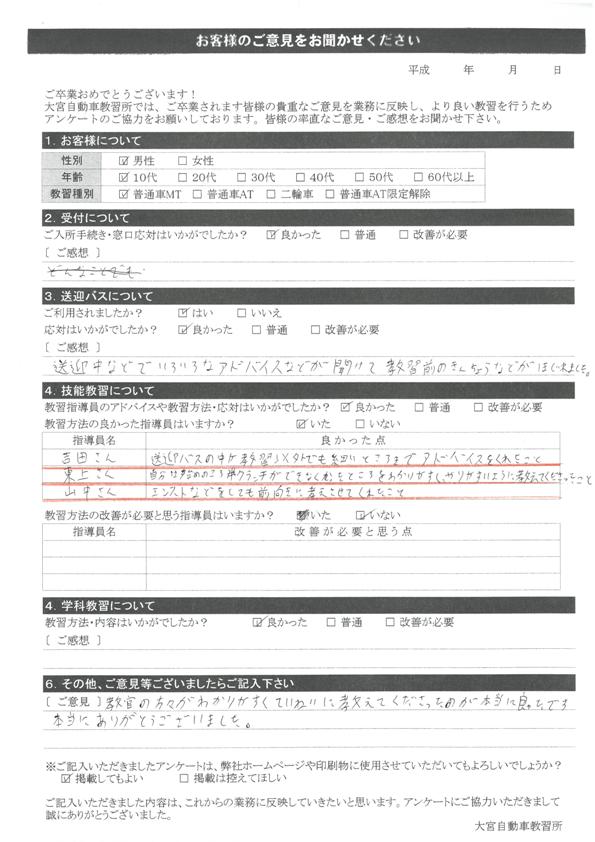 お客様のご意見をお聞かせください
平成 年 月 日
ご卒業おめでとうございます！
大宮自動車教習所では、ご卒業されます皆様の貴重なご意見を業務に反映し、より良い教習を行うため
アンケートのご協力をお願いしております。皆様の率直なご意見・ご感想をお聞かせ下さい。
1．お客様について
性別 ☑ 男性 □ 女性
年齢 ☑ 10代 □ 20代 □ 30代 □ 40代 □ 50代 □ 60代以上
教習種別 ☑ 普通車MT □ 普通車AT □ 二輪車 □ 普通車AT限定解除
2．受付について
ご入所手続き・窓口応対はいかがでしたか？ ☑ 良かった □ 普通 □ 改善が必要
［ ご感想 ］
3．送迎バスについて
ご利用されましたか？ ☑ はい □ いいえ
応対はいかがでしたか？ ☑ 良かった □ 普通 □ 改善が必要
［ ご感想 ］
送迎中などでいろいろなアドバイスなどが聞けて教習前のきんちょうなどがほぐれました。
4．技能教習について
教習指導員のアドバイスや教習方法・応対はいかがでしたか？ ☑ 良かった □ 普通 □ 改善が必要
教習方法の良かった指導員はいますか？ ☑ いた □ いない
指導員名 良かった点
吉田さん 送迎バスの中や教習以外でも細いところまでアドバイスをくれたこと
東上さん 自分は始めのころ半クラッチができなくきたところをわかりやすくやりやすいように教えてくださったこと
山中さん エンストなどをしても前向きに考えさせてくれたこと
教習方法の改善が必要と思う指導員はいますか？ いた ☑ いない
指導員名 改善が必要と思う点
4．学科教習について
教習方法・内容はいかがでしたか？ ☑ 良かった □ 普通 □ 改善が必要
［ ご感想 ］
6．その他、ご意見等ございましたらご記入下さい
［ ご意見 ］ 教官の方々がわかりやすくていねいに教えてくださったのが本当に良かったです
本当にありがとうございました。
※ご記入いただきましたアンケートは、弊社ホームページや印刷物に使用させていただいてもよろしいでしょうか？
☑ 掲載してもよい □ 掲載は控えてほしい
ご記入いただきました内容は、これからの業務に反映していきたいと思います。アンケートにご協力いただきまして
誠にありがとうございました。
大宮自動車教習所